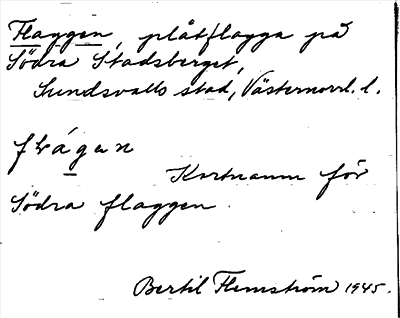 Flaggen, plåtflagga på
Södra Stadsberget,
Sundsvalls stad, Västernorrl. l.
Kortnamn för
Södra flaggen
Bertil Flemström 1945.